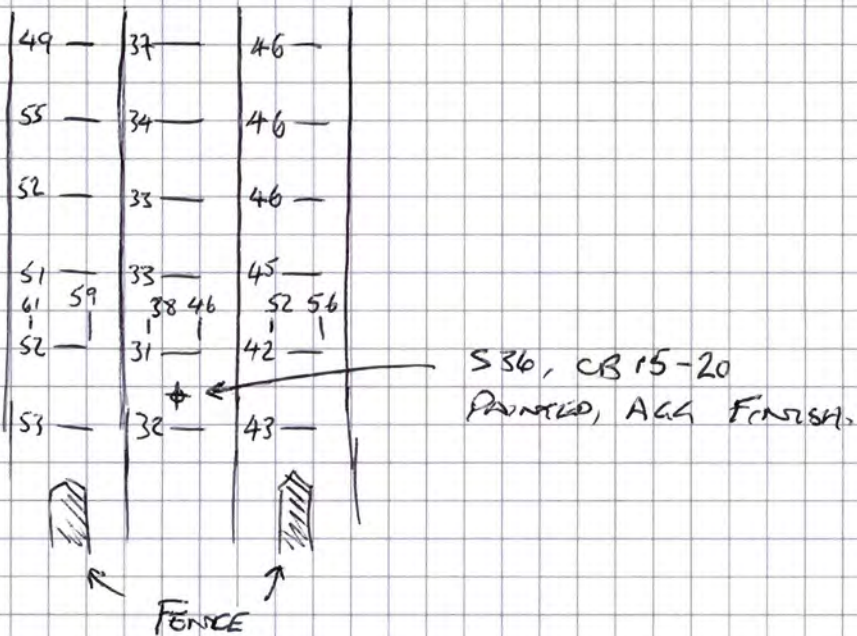 49 37 46
55 34 46
52 33 46
51 33 45
61 59 38 46 52 56
52 31 42
53 32 43
S36, CB 15-20
PAINTED, AGG FINISH.
FENCE